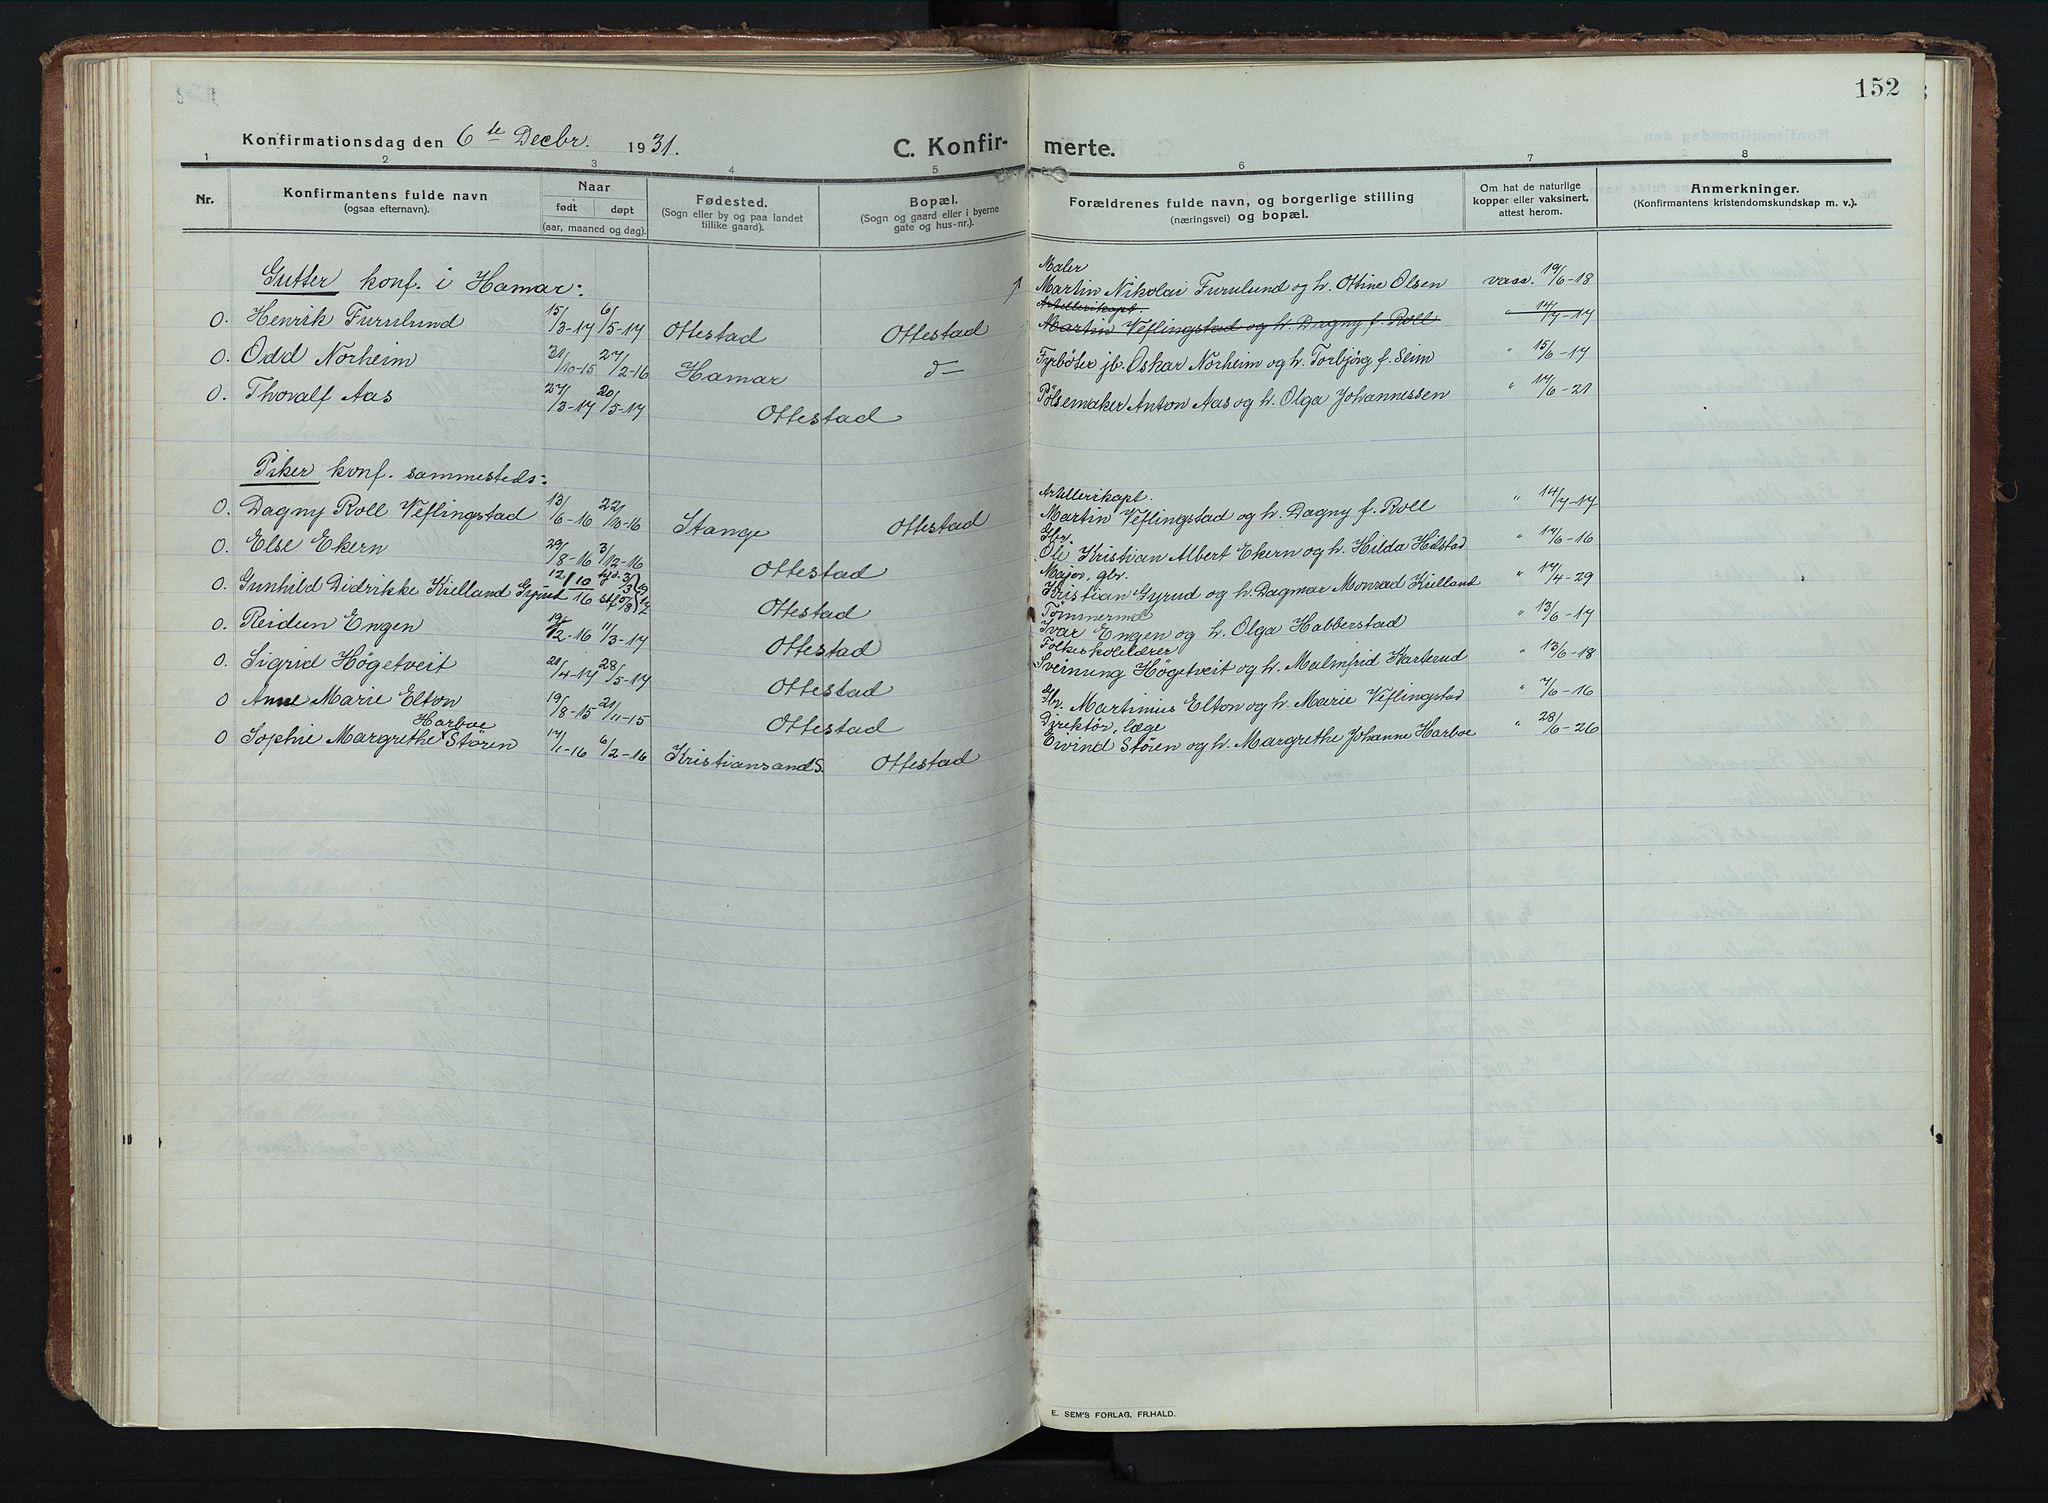 152
Konfirmationsdag den 6te Decbr. 1931. C. Konfirmerte.
1 2 3 4 5 6 7 8
Nr. Konfirmantens fulde navn (ogsaa efternavn). Naar født døpt (aar, maaned og dag). Fødested. (Sogn eller by og paa landet tillike gaard). Bopæl. (Sogn og gaard eller i byerne gate og hus-nr.). Forældrenes fulde navn, og borgerlige stilling (næringsvei) og bopæl. Om hat de naturlige kopper eller vaksinert, attest herom. Anmerkninger. (Konfirmantens kristendomskundskap m. v.).
Gutter konf. i Hamar:
Maler
0. Henrik Furulund 15/3-17 6/5-17 Ottestad Ottestad Martin Nikolai Furulund og h. Ottine Olsen vacc. 19/6-18
Artillerikapt.
Martin Veflingstad og h. Dagny f. Roll " 14/7-17
0. Odd Norheim 31/10-15 27/2-16 Hamar d- Fyrbøter jb. Oskar Norheim og h. Torbjørg f. Seim " 15/6-17
0. Thovalf Aas 27/3-17 20/5-17 Ottestad Pølsemaker Anton Aas og h. Olga Johannessen " 17/6-21
Piker konf. sammesteds:
Artillerikapt.
0. Dagny Roll Veflingstad 13/6-16 22/10-16 Stange Ottestad Martin Veflingstad og h. Dagny f. Roll " 14/7-17
Gbr.
0. Else Ekern 29/8-16 3/12-16 Ottestad Ole Kristian Albert Ekern og h. Hilda Hilstad " 17/6-16
Major, gbr.
0. Gunhild Didrikke Kielland Gyrud 12/10 16 Ottestad Kristian Gyrud og h. Dagmar Monrad Kielland " 17/4-29
Tømmermd
0. Reidun Engen 19/12-16 11/3-17 Ottestad Ivar Engen og h. Olga Habberstad " 13/6-17
Folkeskolelærer
0. Sigrid Høgetveit 21/4-17 28/5-17 Ottestad Sveinung Høgetveit og h. Malmfrid Karterud " 13/6-18
0 Anne Marie Elton 19/8-15 21/11-15 Ottestad Gbr. Martinius Elton og h. Marie Veflingstad " 7/6-16
Harboe Direktør, læge
0 Sophie Margrethe Støren 17/11-16 6/2-16 Kristiansand S. Ottestad Eivind Støren og h. Margrethe Johanne Harboe " 28/6-26
E. SEM'S FORLAG, FR.HALD.